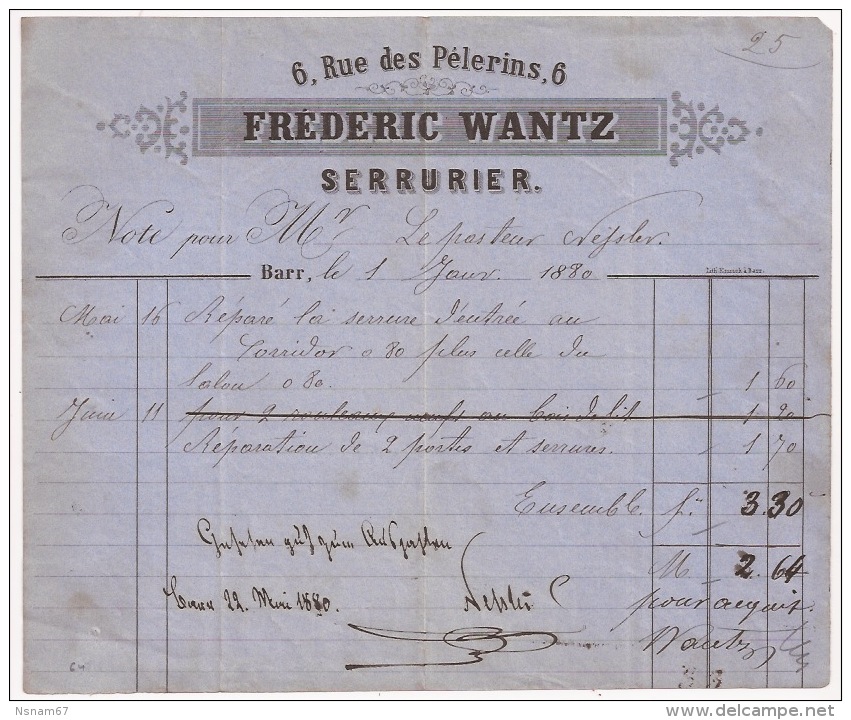 25
6, Rue des Pélerins, 6
FRÉDERIC WANTZ
SERRURIER.
Note pour Mr Le pasteur Nessler.
Barr, le 1 Janr. 1880
Mai 16 Réparé la serrure d'entrée au
Corridor 0 80 plus celle du
Salon 0 80. 1 60
Juin 11 pour 2 rouleaux neufs au bois de lit 1 20
Réparation de 2 portes et serrures. 1 70
Ensemble f. 3.30
Gesehen gut zum Auszahlen
M 2.64
Barr 22. Mai 1880. Nessler
pour acquit.
Wantz
64
Nsnam67
delcampe.net